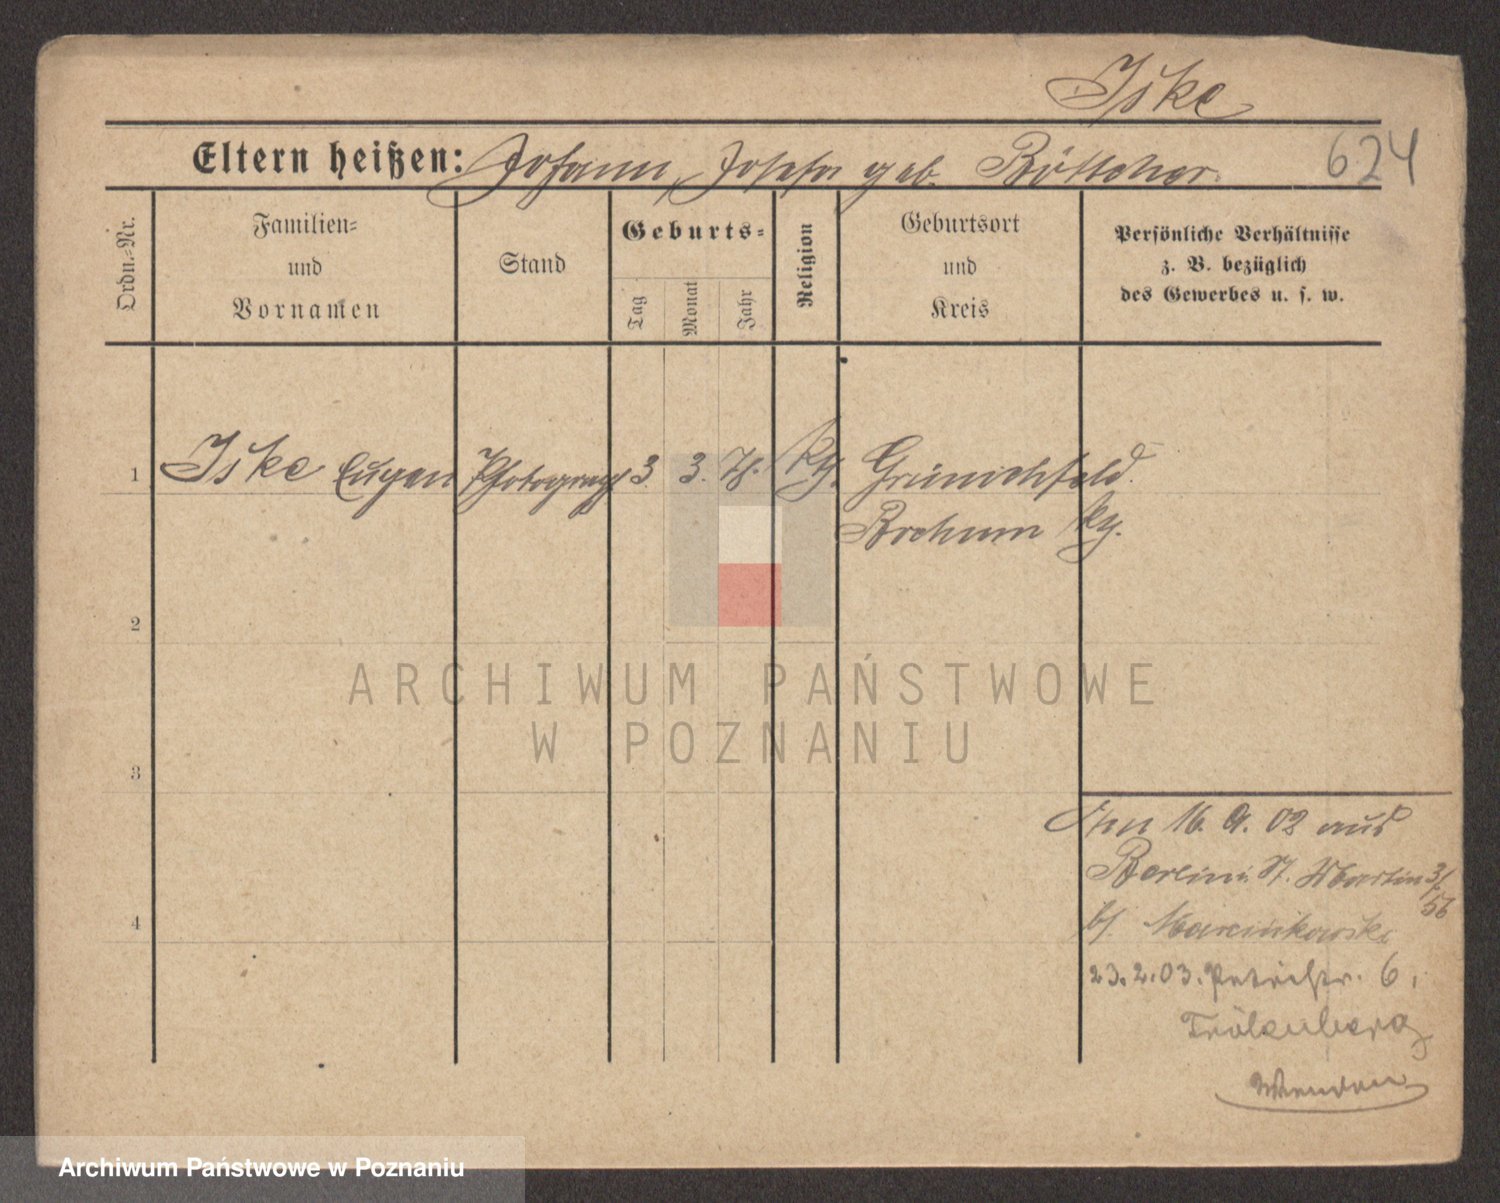 Iske
Eltern heißen: Johann, Josefa geb. Böttcher
624
Ordn.-Nr.
Familien-
und
Vornamen
Stand
Geburts-
Tag
Monat
Jahr
Religion
Geburtsort
und
Kreis
Persönliche Verhältnisse
z. B. bezüglich
des Gewerbes u. s. w.
1 Iske Eugen Photograph 3. 3. 78. kth. Grünichfeld.
Bochum
2
3
4
Den 16. 9. 02 aus
Berlin n. St. Martin 3/
56
b/ Marcinkowski
23.2.03. Petristr. 6.
ARCHIWUM PAŃSTWOWE
W POZNANIU
Archiwum Państwowe w Poznaniu